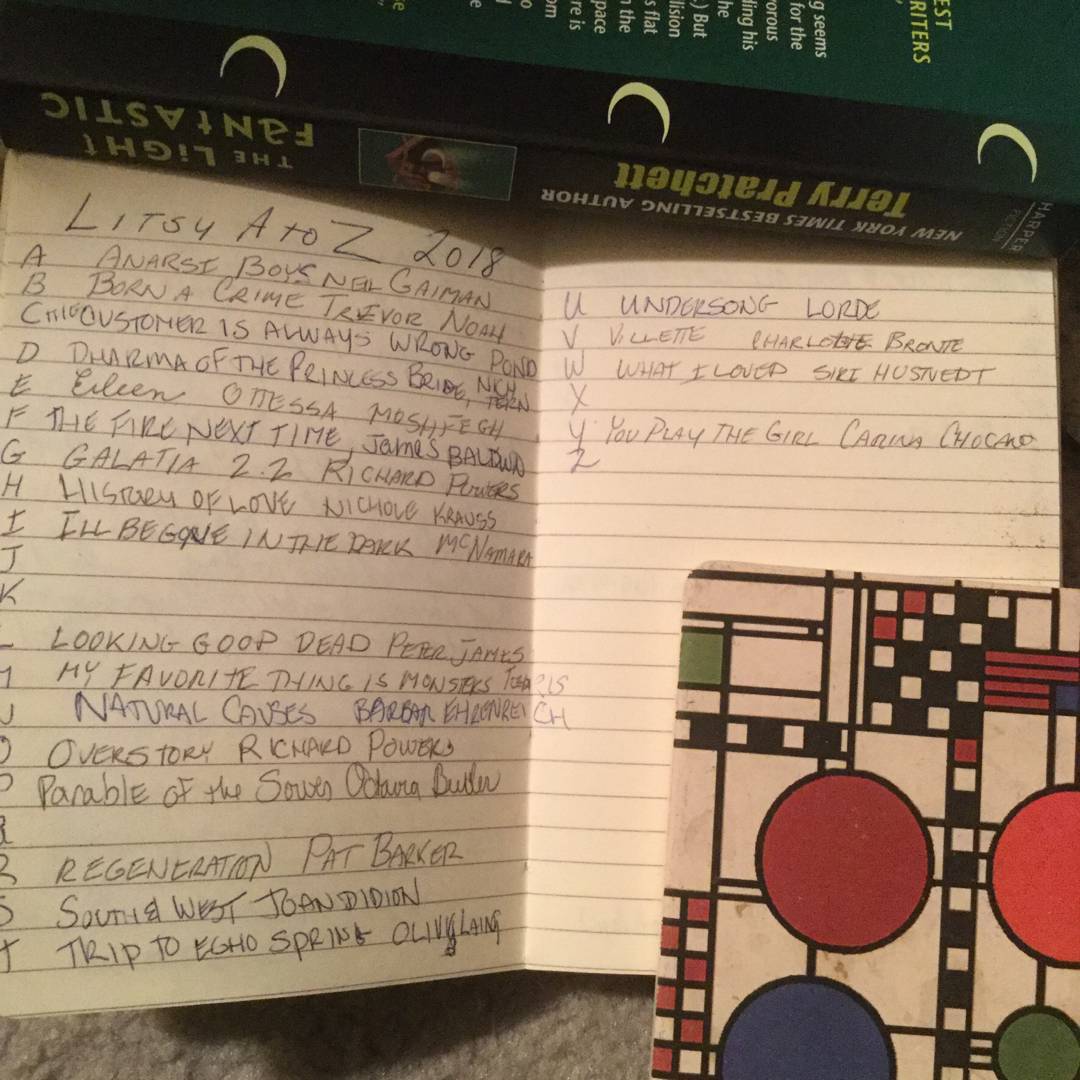 EST
RITERS
g seems
for the
orous
ding his
he
.) But
llision
s flat
n the
pace
re is
om
THE LIGHT
FANTASTIC
Terry Pratchett
NEW YORK TIMES BESTSELLING AUTHOR
HARPER
FICTION
LITSY A TO Z 2018
A ANARSI BOYS NEIL GAIMAN
B BORN A CRIME TREVOR NOAH
C CUSTOMER IS ALWAYS WRONG POND
D DHARMA OF THE PRINCESS BRIDE,
E Eileen OTTESSA MOSHFEGH
F THE FIRE NEXT TIME, JAMES BALDWIN
G GALATIA 2.2 RICHARD POWERS
H HISTORY OF LOVE NICHOLE KRAUSS
I I'LL BE GONE IN THE DARK MCNAMARA
J
K
L LOOKING GOOD DEAD PETER JAMES
M MY FAVORITE THING IS MONSTERS
N NATURAL CAUSES BARBAR EHRENREICH
O OVERSTORY RICHARD POWERS
P Parable of the Sower Octavia Butler
Q
R REGENERATION PAT BARKER
S SOUTH & WEST JOAN DIDION
T TRIP TO ECHO SPRING OLIVIA LAING
U UNDERSONG LORDE
V VILLETTE CHARLOTTE BRONTE
W WHAT I LOVED SIRI HUSTVEDT
X
Y YOU PLAY THE GIRL CARINA CHOCANO
Z